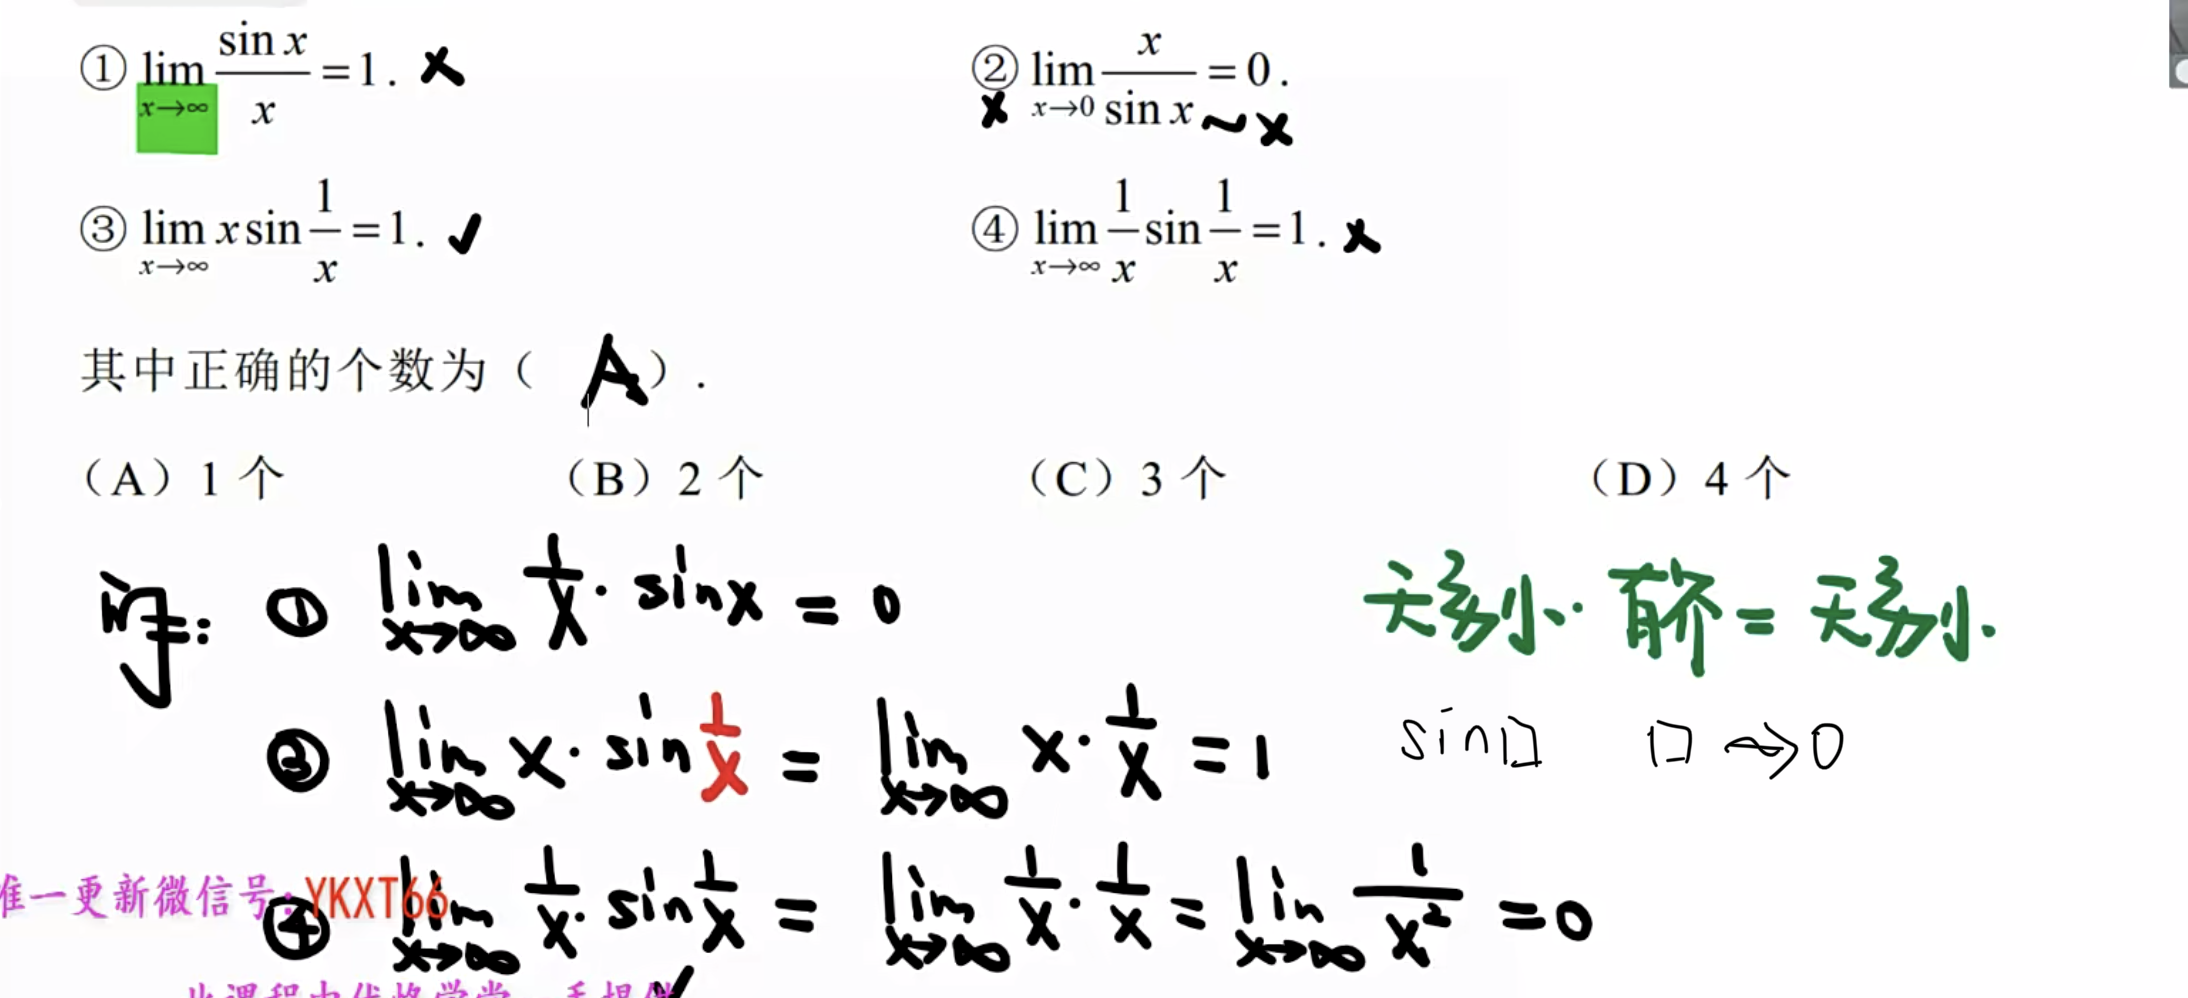 ① lim x→∞ sin x / x = 1. ×
② lim x→0 x / sin x = 0. × ~x
③ lim x→∞ x sin 1/x = 1. ✓
④ lim x→∞ 1/x sin 1/x = 1. ×
其中正确的个数为（ A ）.
（A）1 个 （B）2 个 （C）3 个 （D）4 个
解: ① lim x→∞ 1/x · sinx = 0 无穷小· 有界 = 无穷小.
③ lim x→∞ x · sin 1/x = lim x→∞ x · 1/x = 1 sin□ □→0
唯一更新微信号:YKXT66
④ lim x→∞ 1/x · sin 1/x = lim x→∞ 1/x · 1/x = lim x→∞ 1/x² = 0